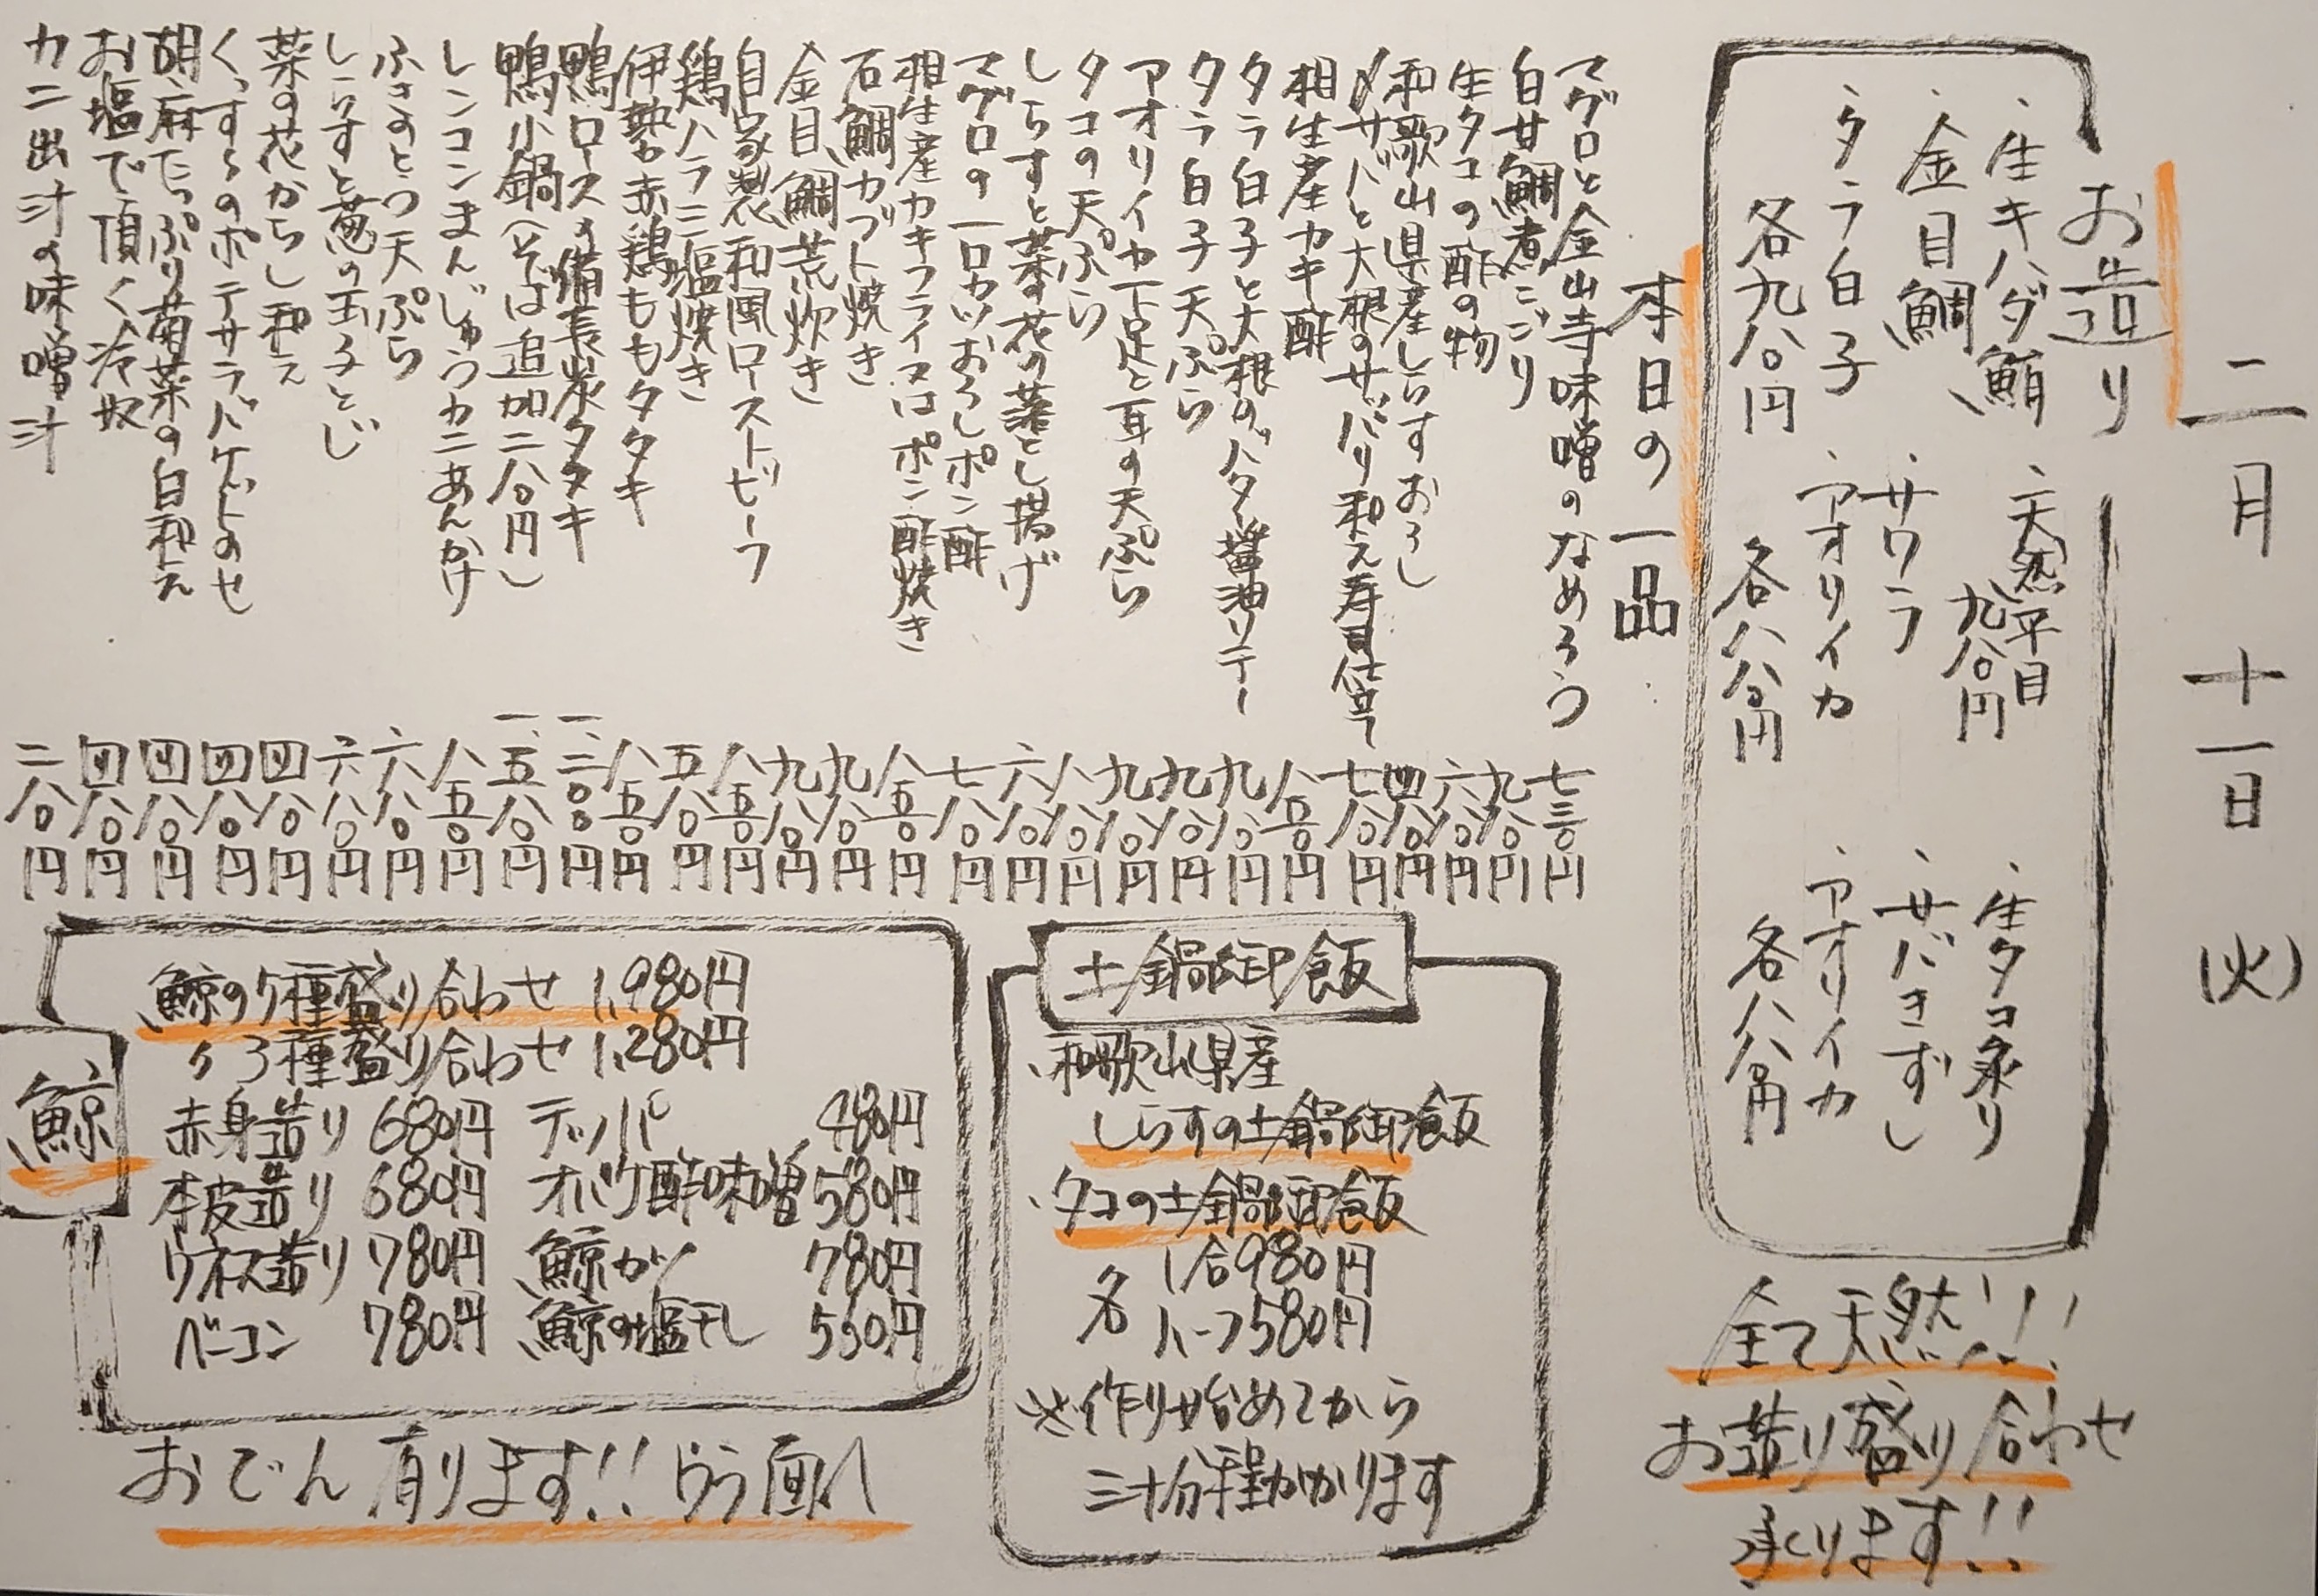 二月十一日(火)
お造り
・生キハダ鮪
・金目鯛
・タラ白子
各九八〇円
・天然平目
九八〇円
・サワラ
・アオリイカ
各八八〇円
・生タコ炙り
・サバきずし
・アオリイカ
各八八〇円
全て天然!!!
お造り盛り合わせ
承ります!!
本日の一品
マグロと金山寺味噌のなめろう 七三〇円
白甘鯛煮こごり 九八〇円
生タコの酢の物 六八〇円
和歌山県産しらすおろし 四八〇円
〆サバと大根のサッパリ和え寿司仕立て 七八〇円
相生産カキ酢 八五〇円
タラ白子と大根のバター醤油ソテー 九八〇円
タラ白子天ぷら 九八〇円
アオリイカ下足と耳の天ぷら 九八〇円
タコの天ぷら 八八〇円
しらすと菜の花の落とし揚げ 六八〇円
マグロの一口カツおろしポン酢 七八〇円
相生産カキフライ又はポン酢焼き 八五〇円
石鯛カブト焼き 九八〇円
金目鯛荒炊き 九八〇円
自家製和風ローストビーフ 八五〇円
鶏ハラミ塩焼き 五八〇円
伊勢赤鶏ももタタキ 八五〇円
鴨ロースの備長炭タタキ 一、二〇〇円
鴨小鍋(そば追加二八〇円) 一、五八〇円
レンコンまんじゅうカニあんかけ 八五〇円
ふきのとう天ぷら 六八〇円
しらすと葱の玉子とじ 六八〇円
菜の花からし和え 四八〇円
くんすらのポテサラバケットのせ 四八〇円
胡麻たっぷり菊菜の白和え 四八〇円
お塩で頂く冷奴 四八〇円
カニ出汁の味噌汁 二八〇円
土鍋御飯
・和歌山県産
しらすの土鍋御飯
・タコの土鍋御飯
各 1合980円
ハーフ580円
※作り始めてから
三十分程かかります
鯨
鯨の5種盛り合わせ 1,980円
〃 3種盛り合わせ 1,280円
赤身造り 680円 テッパ 480円
本皮造り 680円 オバケ酢味噌 580円
ウネス造り 780円 鯨カツ 780円
ベーコン 780円 鯨の塩干し 550円
おでん有ります!! ウラ面へ